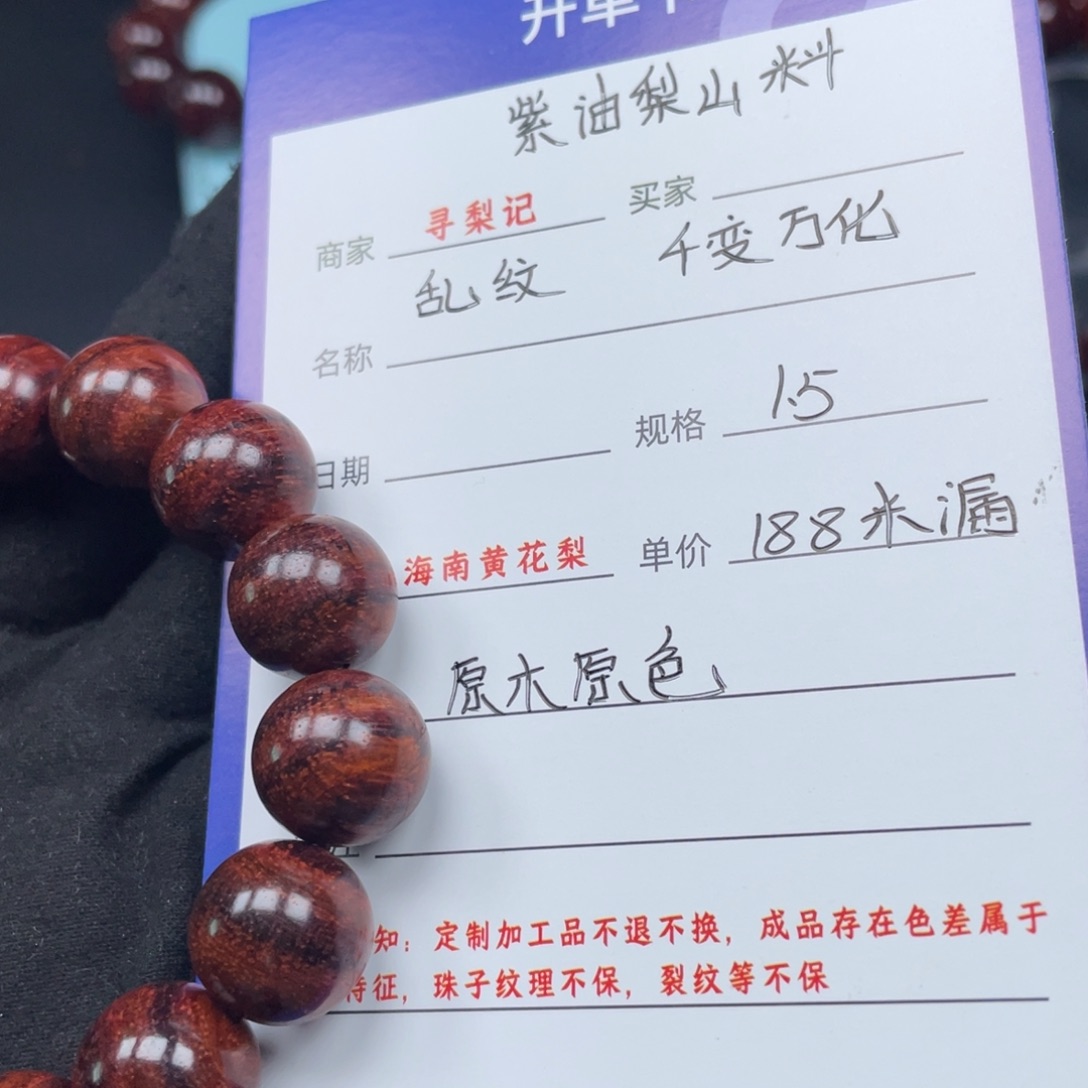 开单卡
紫油梨山料
商家 寻梨记 买家
乱纹 千变万化
名称
日期 规格 1.5
海南黄花梨 单价 188米漏
原木原色
知：定制加工品不退不换，成品存在色差属于
特征，珠子纹理不保，裂纹等不保